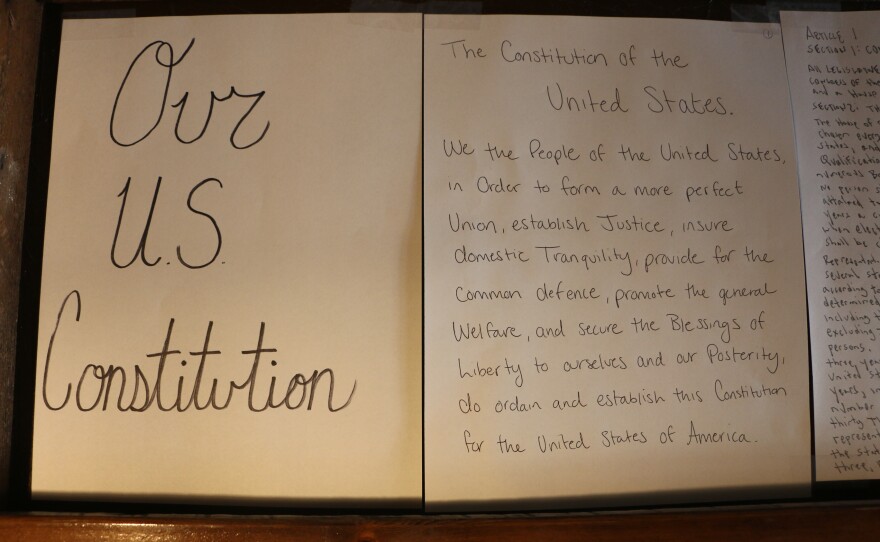 Our
U.S.
Constitution
The Constitution of the
United States.
We the People of the United States,
in Order to form a more perfect
Union, establish Justice, insure
domestic Tranquility, provide for the
Common defence, promote the general
Welfare, and secure the Blessings of
Liberty to ourselves and our Posterity,
do ordain and establish this Constitution
for the United States of America.
Article 1
Section 1:
All Legislative
Congress of the
and a House
Section 2:
The House of
Chosen every
States, and
Qualification
numerous
No person s
attained to
years a c
when elect
shall be c
Representat
several sta
according to
determined
including t
excluding
persons.
three year
United St
years, in
number
thirty Th
represent
the stat
three,